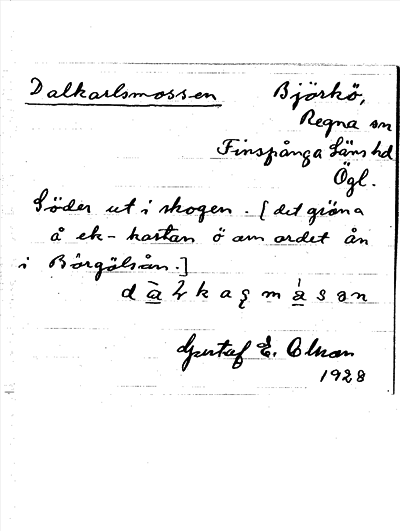 Dalkarlsmossen
Björkö,
Regna sn
Finspånga Läns hd
Ögl.
Söder ut i skogen. [det gröna
å ek-kartan ö om ordet ån
i Börgölsån.]
Gustaf E. Olsson
1928